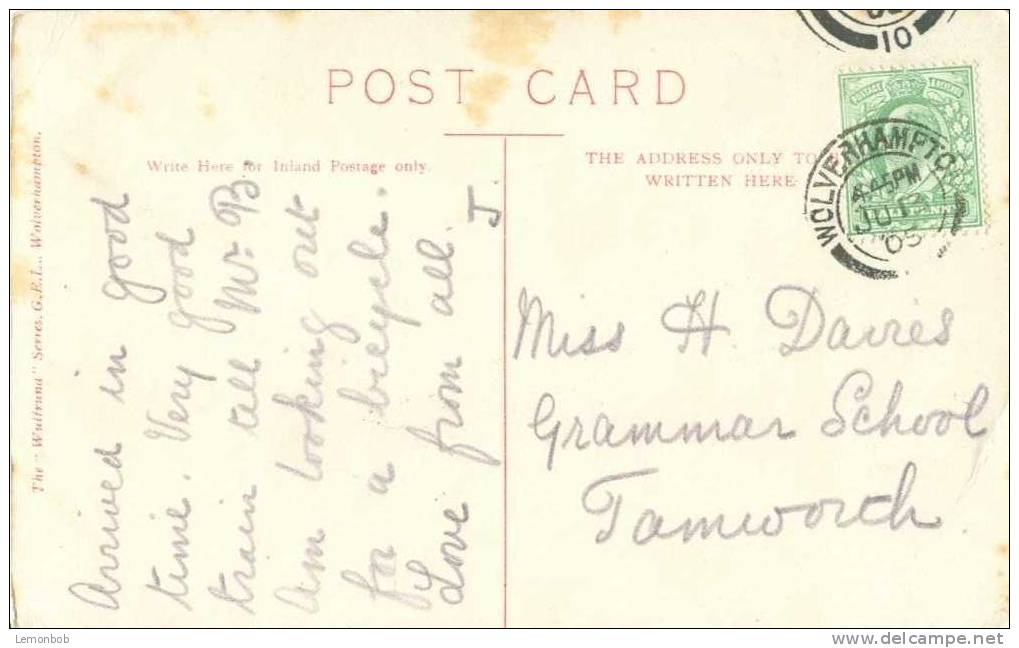 10
POST CARD
Write Here for Inland Postage only.
THE ADDRESS ONLY TO
WRITTEN HERE
The "Wulfruna" Series, G.E.L., Wolverhampton.
POSTAGE
WOLVERHAMPTO
4.45PM
JU
05
Arrived in good
time. Very good
train tell Mr. B
Am looking out
for a bicycle.
Love from all. J
Miss H Davies
Grammar School
Tamworth
Lemonbob
www.delcampe.net